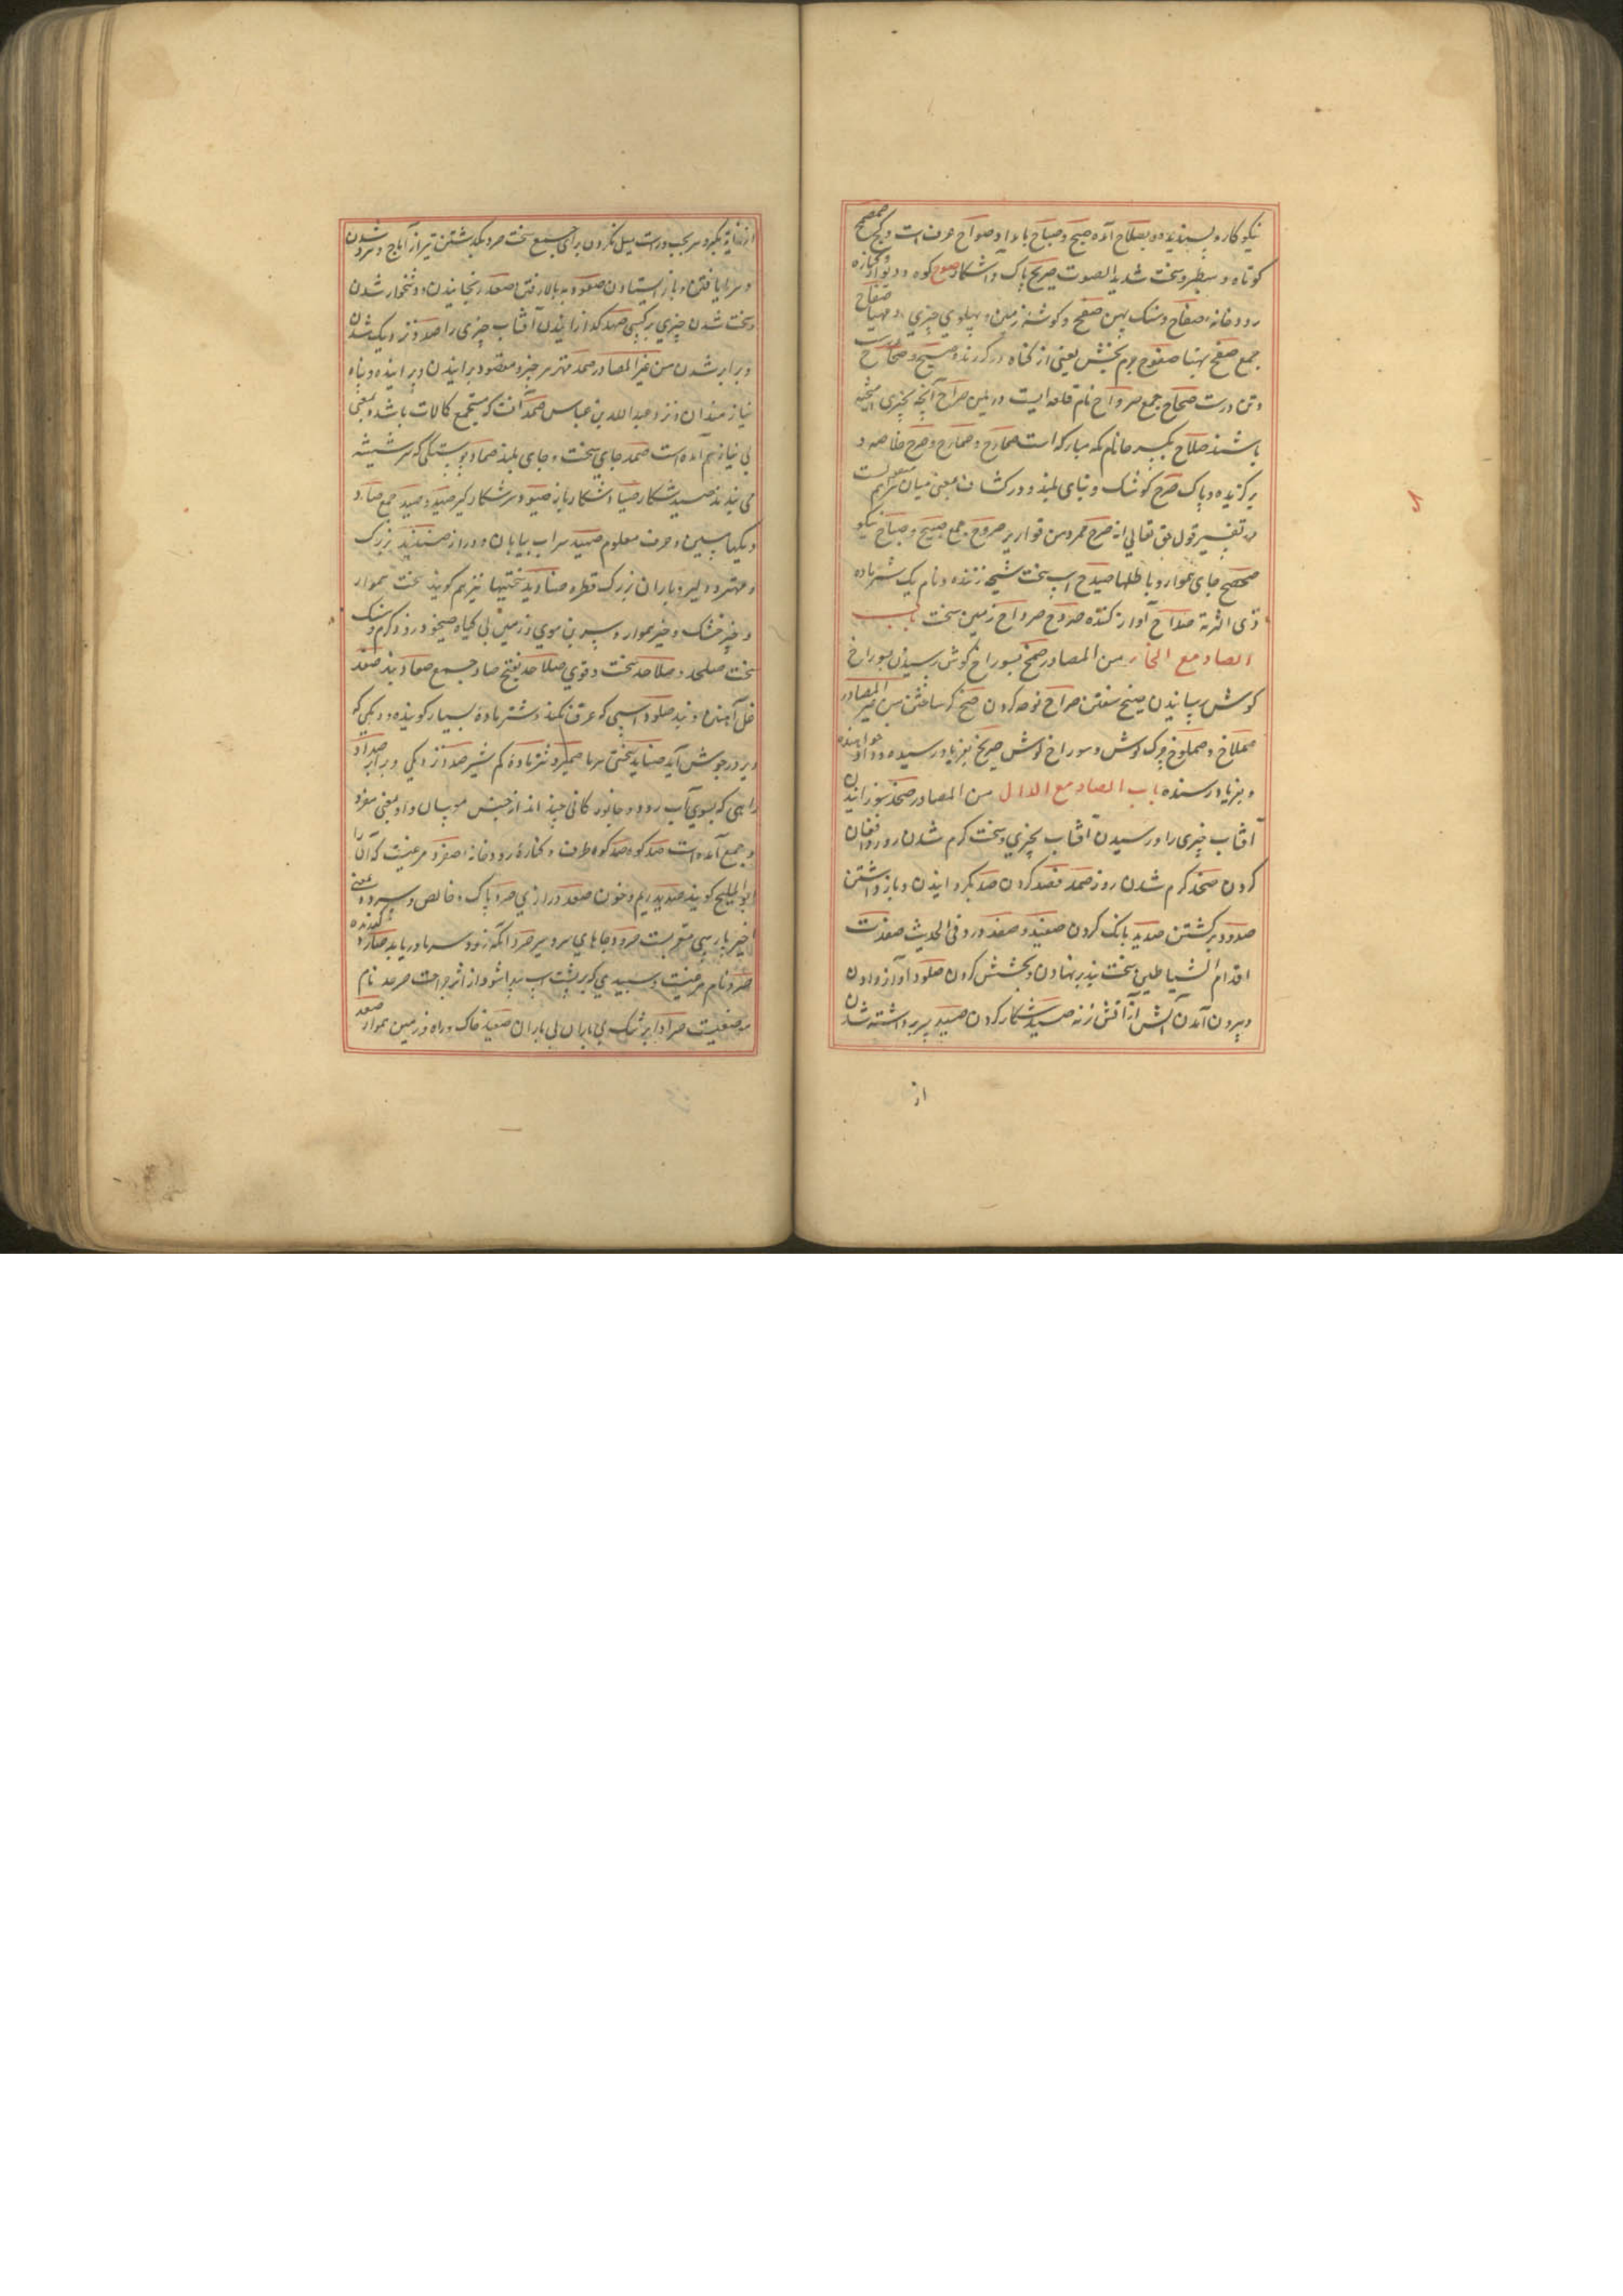 نیکو کار و پسندیده و بصلاح آمده صبیح و صباح بامداد صواح عرق است و کچ صمحمح
کوتاه و سطبر و سخت شدید الصوت صریح پاک و آشکار صوح کوه و دیوار و کناره
رودخانه صفاح و سنک پهن صفح و کوشه زمین و پهلوی چیزی و صفاح
جمع صفح پهنا صفوح جرم بخش یعنی از کناه درکررنده صحیح و صحاح
و تن درست صحاح جمع صرواح نام قلعه ایست در یمن صراح آنچه بچیزی
باشند صلاح بکسر حا نام مکه مبارکه است صمارح و صمارح و صرح خلاصه و
برکزیده و پاک صرح کوشک و بنای بلند و در کشاف بمعنی میان سرایست
در تفسیر قول حق تعالی انه صرح ممرد من قواریر صروح جمع صبیح و صباح نیکو
صحصح جای هموار و باطلها صیدح اسپ سخت شیهه زننده و نام یک شتر ماده
ذی الرمة صداح آواز کننده صردح صرداح زمین سخت باب
الصاد مع الخاء من المصادر صمخ بسوراخ کوش رسیدن بسوراخ
کوش رسانیدن صیخ سفتن صراخ نوحه کردن صخ کر ساختن من غیر المصادر
صملاخ و صملوخ چرک کوش و سوراخ کوش صریخ بفریاد رسیده و داد خواهنده
و بفریاد رسنده باب الصاد مع الدال من المصادر صخد سوزانیدن
آفتاب چیزی را و رسیدن آفتاب بچیزی و سخت کرم شدن روز و افغان
کردن صخد کرم شدن روز صمد قصد کردن صد بکردانیدن و باز داشتن
صدود برکشتن صدید بانک کردن صفید و صفد و در فی الحدیث صفدت
اقدام الشیاطین و سخت بند بر نهادن و بخشش کردن صلود آواز دادن
و بیرون آمدن آتش از آتش زنه صید شکار کردن صید سر برداشته شدن
از
از غایة تکبر و سر بچپ و راست میل نکردن برای جمع سخت صرد بکذشتن تیر از آماج و سرد شدن
و سرما یافتن و باز ایستادن صعود بر بالا رفتن اصعد رنجانیدن و دشخوار شدن
و سخت شدن چیزی بر کسی صهد کدازانیدن آفتاب چیزی را صدد نزدیک شدن
و برابر شدن من غیر المصادر صمد مهتر هر چیز و مقصود برانیدن و برانیده و پناه
نیازمندان و نزد عبد الله بن عباس صمد آنست که مستجمع کمالات باشد و بمعنی
بی نیاز هم آمده است صمد جای سخت و جای بلند صماد پوستکی که سر شیشه
می بندند صید شکار صیاد شکار باز صیود سر شکار کیر صید و صید جمع صاد
دیکها و مسین و حرف معلوم صهید سراب بیابان و دراز صندید بزرک
و مهتر و دلیر و باران بزرک قطره صنادید سختیها نیز هم کویند سخت هموار
و چیز خشک و چیز هموار و سر بی موی و زمین بی کیاه صیخود روز کرم و سنک
سخت صلخد و صلاخد سخت و قوی صلاخد بفتح صاد جمع صفاد بند صفد
غل آهنین و بند صلود اسپی که عرق نکند و شتر ماده بسیار کوینده و دیکی که
دیر در جوش آید صناید سختی سرما صمرد شتر ماده کم شیر صدد نزدیکی و برابر صداد
راهی که بسوی آب رود و جانور کانی چند اند از جنس موسان و او بمعنی مفرد
و جمع آمده است صد کوه صد کوه طرف و کناره رودخانه اصفرد مرغیست که آن را
ابو الملیح کویند صدید ریم و خون صعد درازی صرد پاک و خالص و سرد و معنی
اخیر پارسی معربست صرود جاهای سرد سیر صرد آنکه زود سرما دریابد صاد کذرنده
صرد نام مرغیست و سپیدی که بر پشت اسپ پیدا شود از اثر جراحت صرخد نام
موضعیست صراد ابر تنک بی باران بی باران صعید خاک و راه و زمین هموار صعد